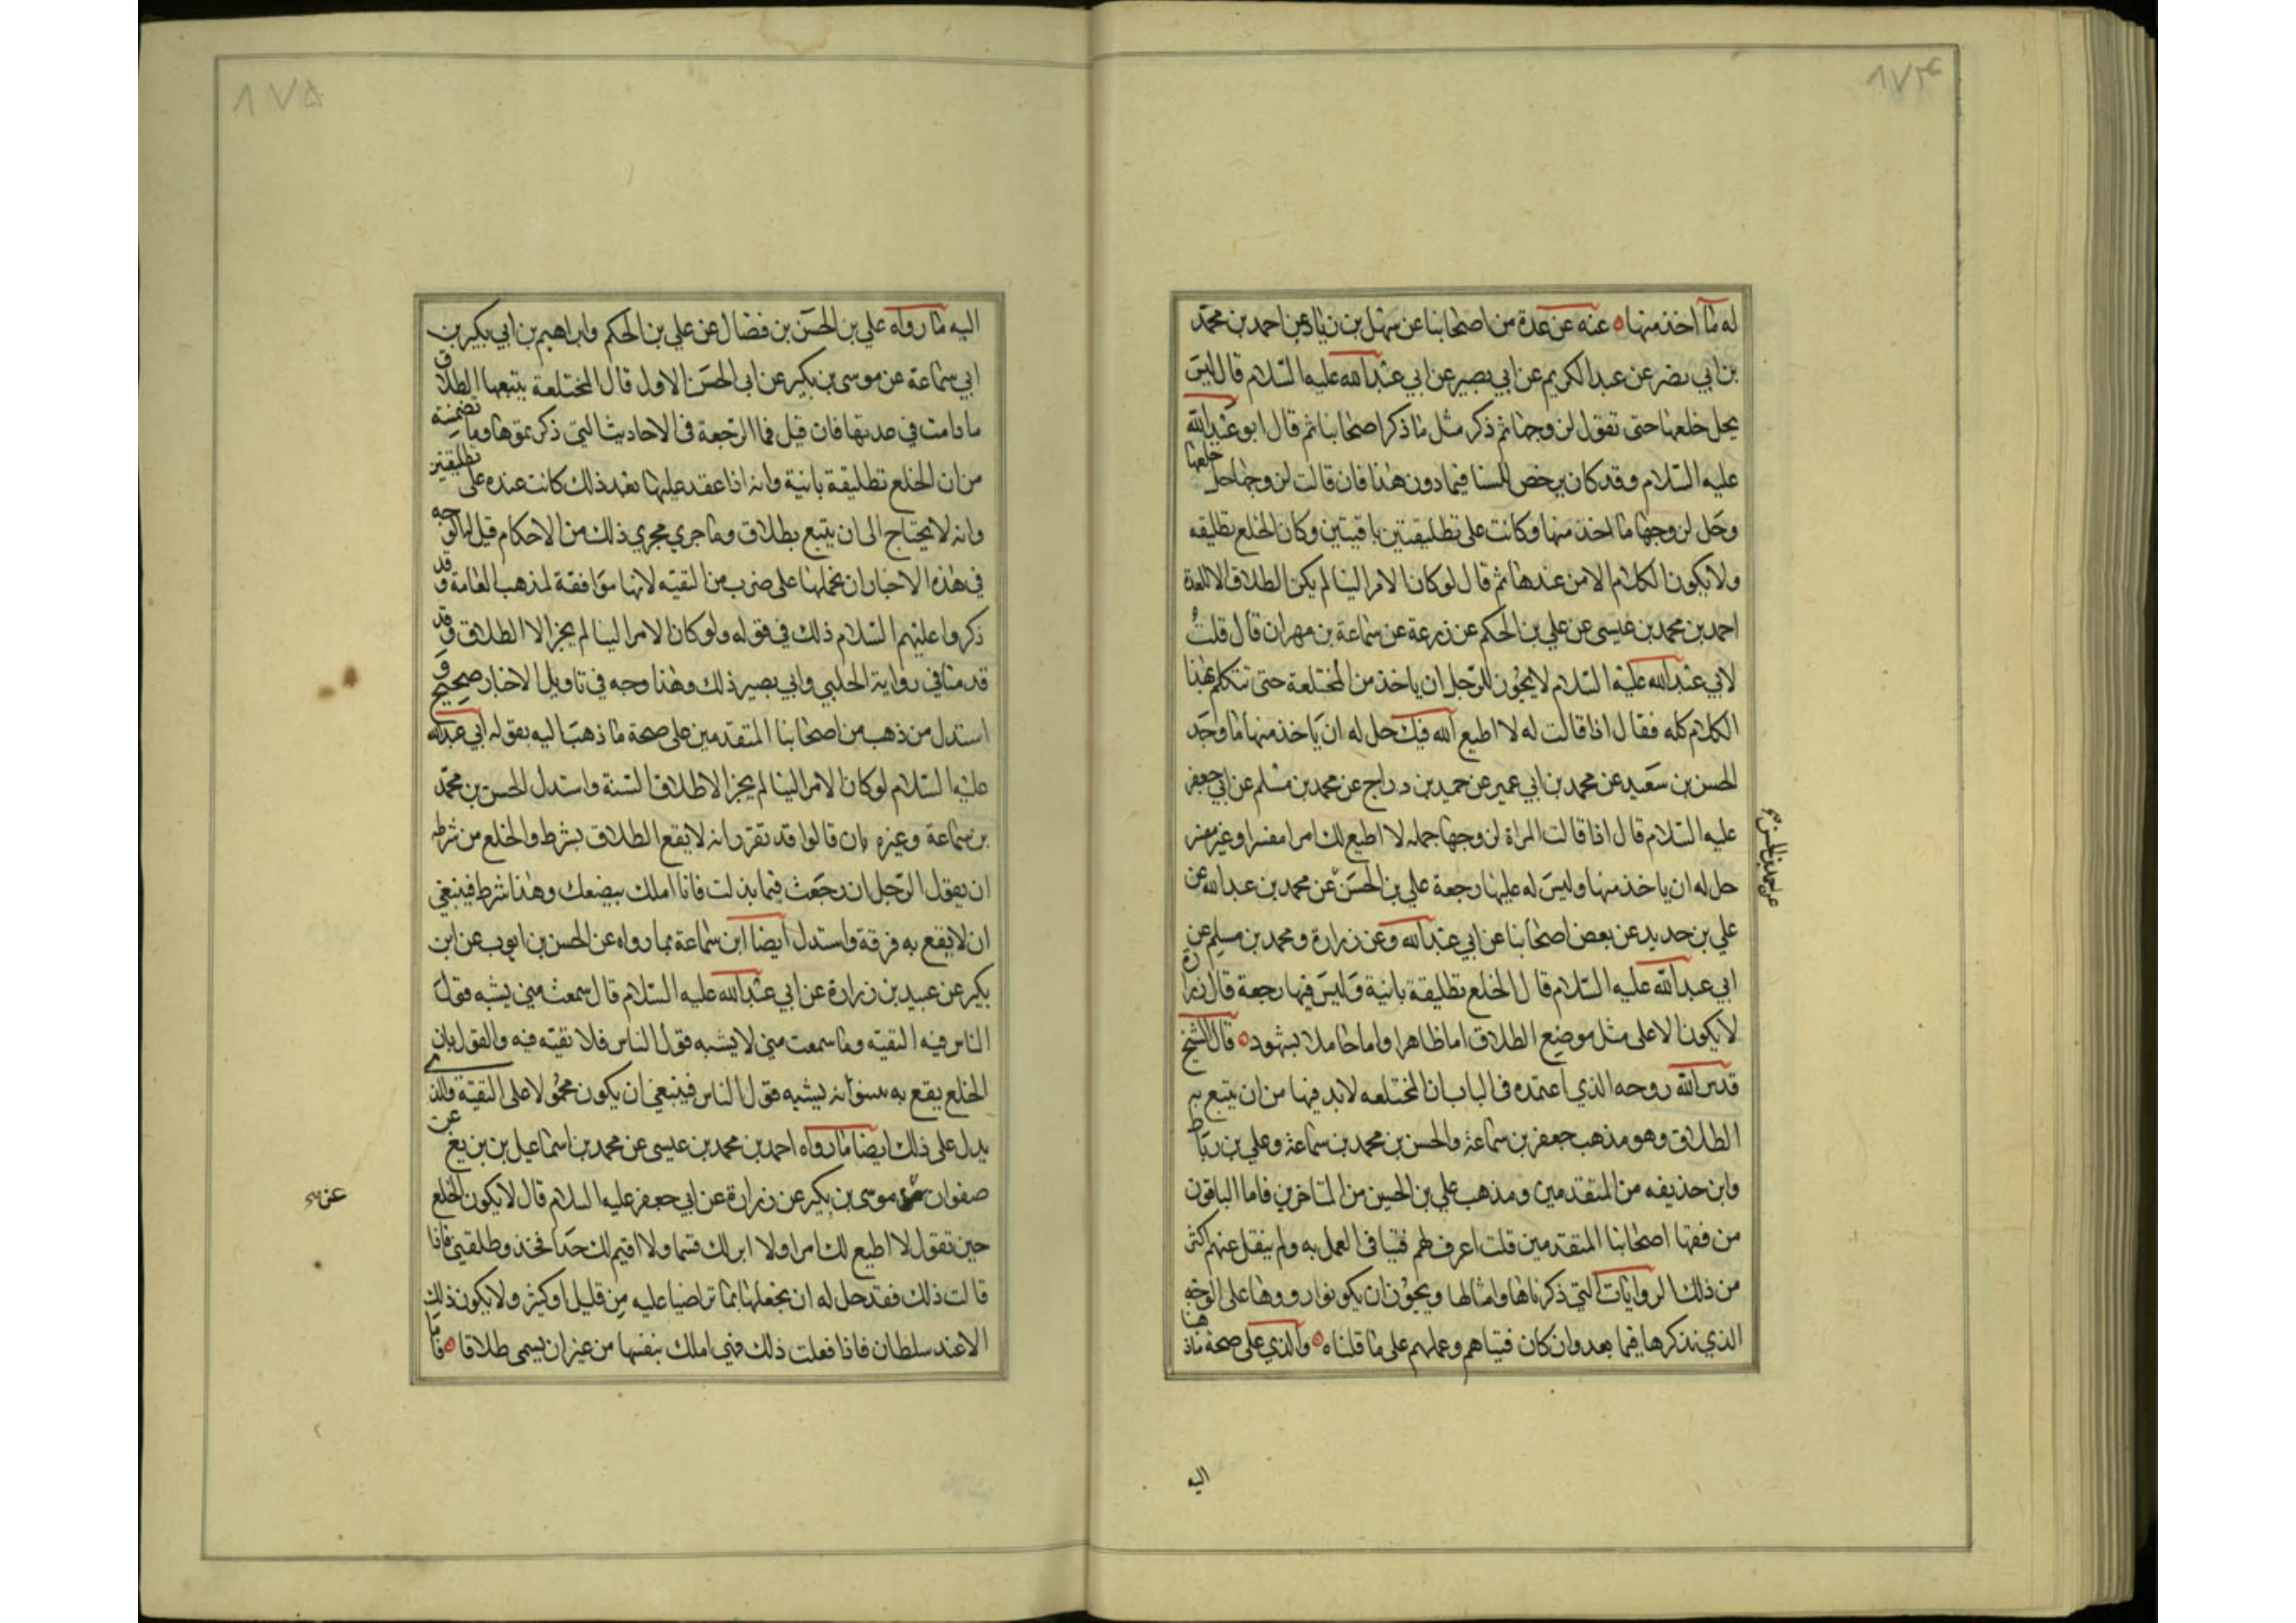 ۸۷۴
له ما اخذ منها عنه عن عدة من اصحابنا عن سهل بن زياد عن احمد بن محمد
بن ابي نصر عن عبد الكريم عن ابي بصير عن ابي عبد الله عليه السلام قال ليس
يحل خلعها حتى تقول لزوجها ثم ذكر مثل ما ذكر اصحابنا ثم قال ابو عبد الله
عليه السلام وقد كان يرخص للنسا فيما دون هذا فان قالت لزوجها حل خلعها
وحل لزوجها ما اخذ منها وكانت على تطليقتين باقيتين وكان الخلع تطليقه
ولا يكون الكلام الا من عندها ثم قال لو كان الامر الينا لم يكن الطلاق الا للعدة
احمد بن محمد بن عيسى عن علي بن الحكم عن زرعة عن سماعة بن مهران قال قلت
لابي عبد الله عليه السلام لا يجوز للرجل ان ياخذ من المختلعة حتى تتكلم بهذا
الكلام كله فقال اذا قالت له لا اطيع الله فيك حل له ان ياخذ منها ما وجد
الحسن بن سعيد عن محمد بن ابي عمير عن حميد بن دراج عن محمد بن مسلم عن ابي جعفر
عليه السلام قال اذا قالت المراة لزوجها جمله لا اطيع لك امرا مفسرا او غير مفسر
حل له ان ياخذ منها وليس له عليها رجعة علي بن الحسن عن محمد بن عبد الله عن
علي بن حديد عن بعض اصحابنا عن ابي عبد الله وعن زرارة ومحمد بن مسلم عن
ابي عبد الله عليه السلام قال الخلع تطليقة بانية وليس فيها رجعة قال زرارة
لا يكون الا على مثل موضع الطلاق اما ظاهرا واما حاملا بشهود قال الشيخ
قدس الله روحه الذي اعتمده في الباب ان المختلعه لابد فيها من ان يتبع بر
الطلاق وهو مذهب جعفر بن سماعة والحسن بن محمد بن سماعة وعلي بن رباط
وابن حذيفه من المتقدمين ومذهب علي بن الحسين من المتاخرين فاما الباقون
من فقها اصحابنا المتقدمين قلت اعرف لهم فتيا في العمل به ولم ينقل عنهم اكثر
من ذلك الروايات التي ذكرناها وامثالها ويجوز ان يكونوا رووها على الوجه
الذي نذكرها فيما بعد وان كان فتياهم وعملهم على ما قلناه والذي على صحة ماذهبنا
اليه
عن احمد بن الحسن
۸۷۵
اليه ما رواه علي بن الحسن بن فضال عن علي بن الحكم وابراهيم بن ابي بكير بن
ابي سماعة عن موسى بن بكير عن ابي الحسن الاول قال المختلعة يتبعها الطلاق
ما دامت في عدتها فان قيل فما الرجعة في الاحاديث التي ذكرتموها وما تضمنته
من ان الخلع تطليقة بانية وانه اذا عقد عليها بعد ذلك كانت عنده على تطليقتين
وانه لا يحتاج الى ان يتبع بطلاق وما جرى مجرى ذلك من الاحكام قيل لها الوجه
في هذه الاخبار ان نحملها على ضرب من التقيه لانها موافقة لمذهب العامة وقد
ذكروا عليهم السلام ذلك في قوله ولو كان الامر الينا لم يجز الا الطلاق وقد
قدمنا في رواية الحلبي وابي بصير ذلك وهذا وجه في تاويل الاخبار صحيح و
استدل من ذهب من اصحابنا المتقدمين على صحة ما ذهب اليه بقوله ابي عبد الله
عليه السلام لو كان الامر الينا لم يجز الا طلاق السنة واستدل الحسن بن محمد
بن سماعة وغيره بان قالوا قد تقرر انه لا يقع الطلاق بشرط والخلع من شرطه
ان يقول الرجل ان رجعت فيما بذلت فانا املك ببضعك وهذا شرط فينبغي
ان لا يقع به فرقة واستدل ايضا ابن سماعة بما رواه عن الحسن بن ايوب عن ابن
بكير عن عبيد بن زرارة عن ابي عبد الله عليه السلام قال سمعت مني يشبه قول
الناس فيه التقيه وما سمعت مني لا يشبه قول الناس فلا تقيه فيه والقول بان
الخلع يقع به يشبه قول الناس فينبغي ان يكون محمولا على التقية والذي
يدل على ذلك ايضا ما رواه احمد بن محمد بن عيسى عن محمد بن اسماعيل بن بزيع عن
صفوان موسى بن بكير عن زرارة عن ابي جعفر عليه السلام قال لا يكون الخلع
حين تقول لا اطيع لك امرا ولا ابر لك قسما ولا اقيم لك حدا فخذ وطلقني فاذا
قالت ذلك فقد حل له ان يخلعها بما تراضيا عليه من قليل او كثير ولا يكون ذلك
الا عند سلطان فاذا فعلت ذلك فهي املك بنفسها من غير ان يسمى طلاقا فاما
عن